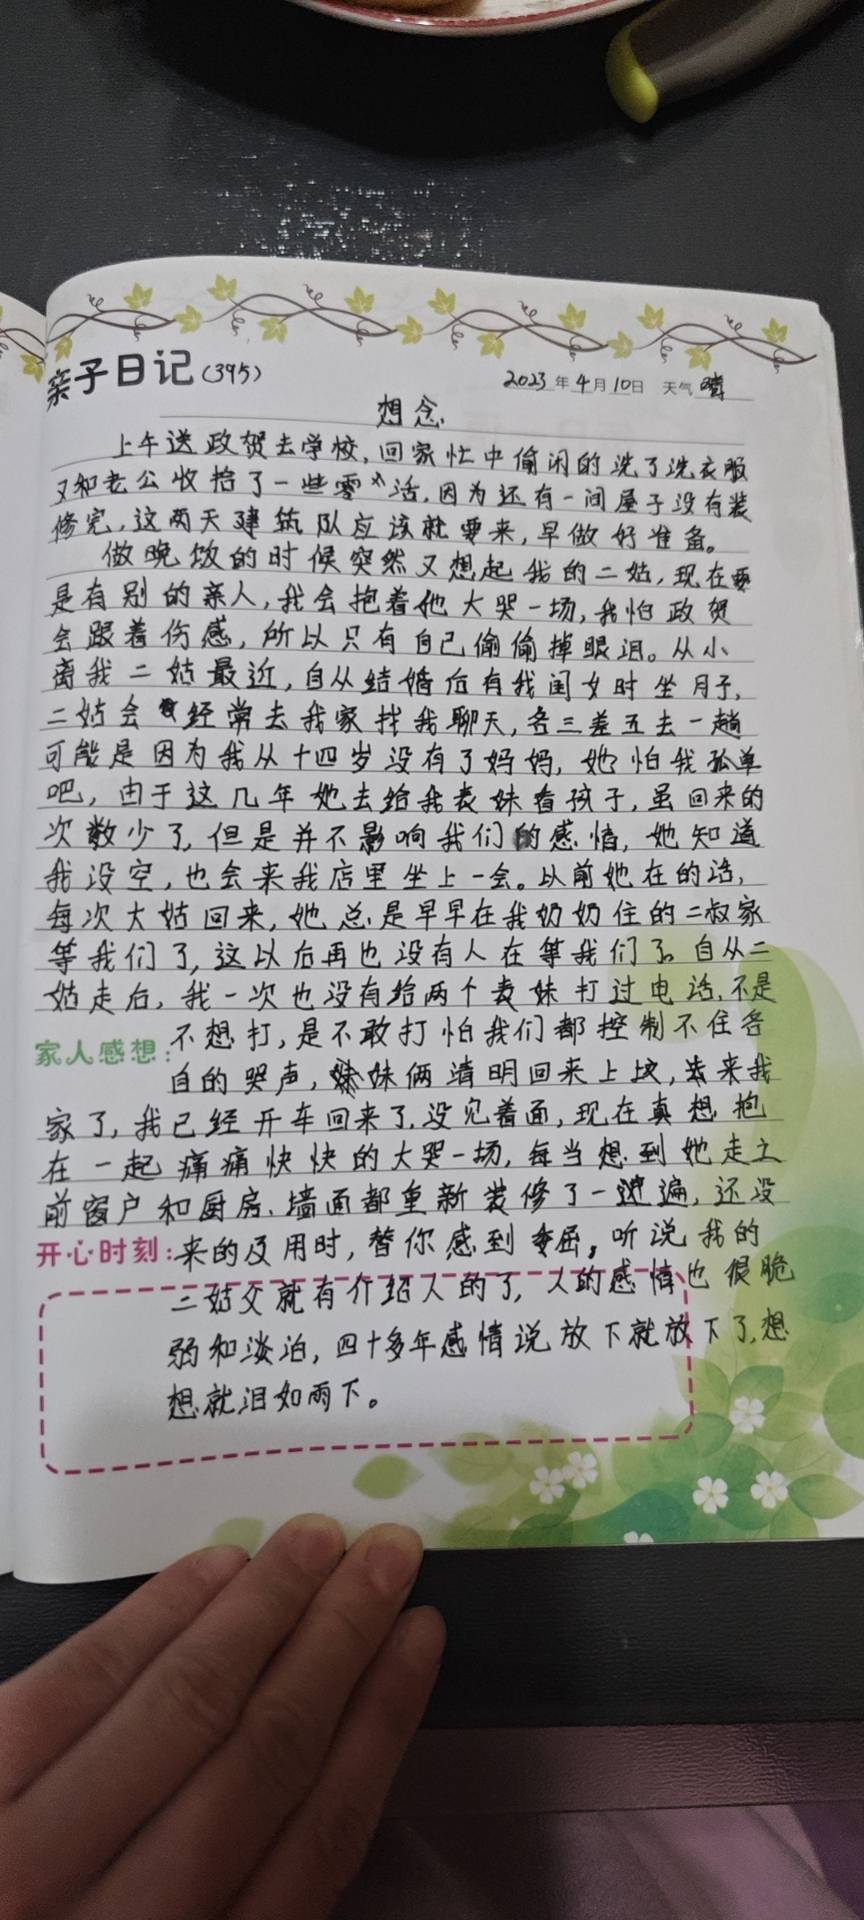 亲子日记(395) 2023年4月10日 天气 晴
想念
上午送政贺去学校,回家忙中偷闲的洗了洗衣服
又和老公收拾了一些零火活,因为还有一间屋子没有装
修完,这两天建筑队应该就要来,早做好准备。
做晚饭的时候突然又想起我的二姑,现在要
是有别的亲人,我会抱着他大哭一场,我怕政贺
会跟着伤感,所以只有自己偷偷掉眼泪。从小
离我二姑最近,自从结婚后有我闺女时坐月子,
二姑会经常去我家找我聊天,各三差五去一趟
可能是因为我从十四岁没有了妈妈,她怕我孤单
吧,由于这几年她去给我表妹看孩子,虽回来的
次数少了,但是并不影响我们的感情,她知道
我没空,也会来我店里坐上一会。以前她在的话,
每次大姑回来,她总是早早在我奶奶住的二叔家
等我们了,这以后再也没有人在等我们了。自从二
姑走后,我一次也没有给两个表妹打过电话,不是
家人感想:不想打,是不敢打怕我们都控制不住各
自的哭声,妹俩清明回来上坟,去来我
家了,我已经开车回来了,没见着面,现在真想抱
在一起痛痛快快的大哭一场,每当想到她走之
前窗户和厨房、墙面都重新装修了一遍,还没
开心时刻:来的及用时,替你感到委屈,听说我的
二姑父就有介绍人的了,人的感情也很脆
弱和淡泊,四十多年感情说放下就放下了,想
想就泪如雨下。